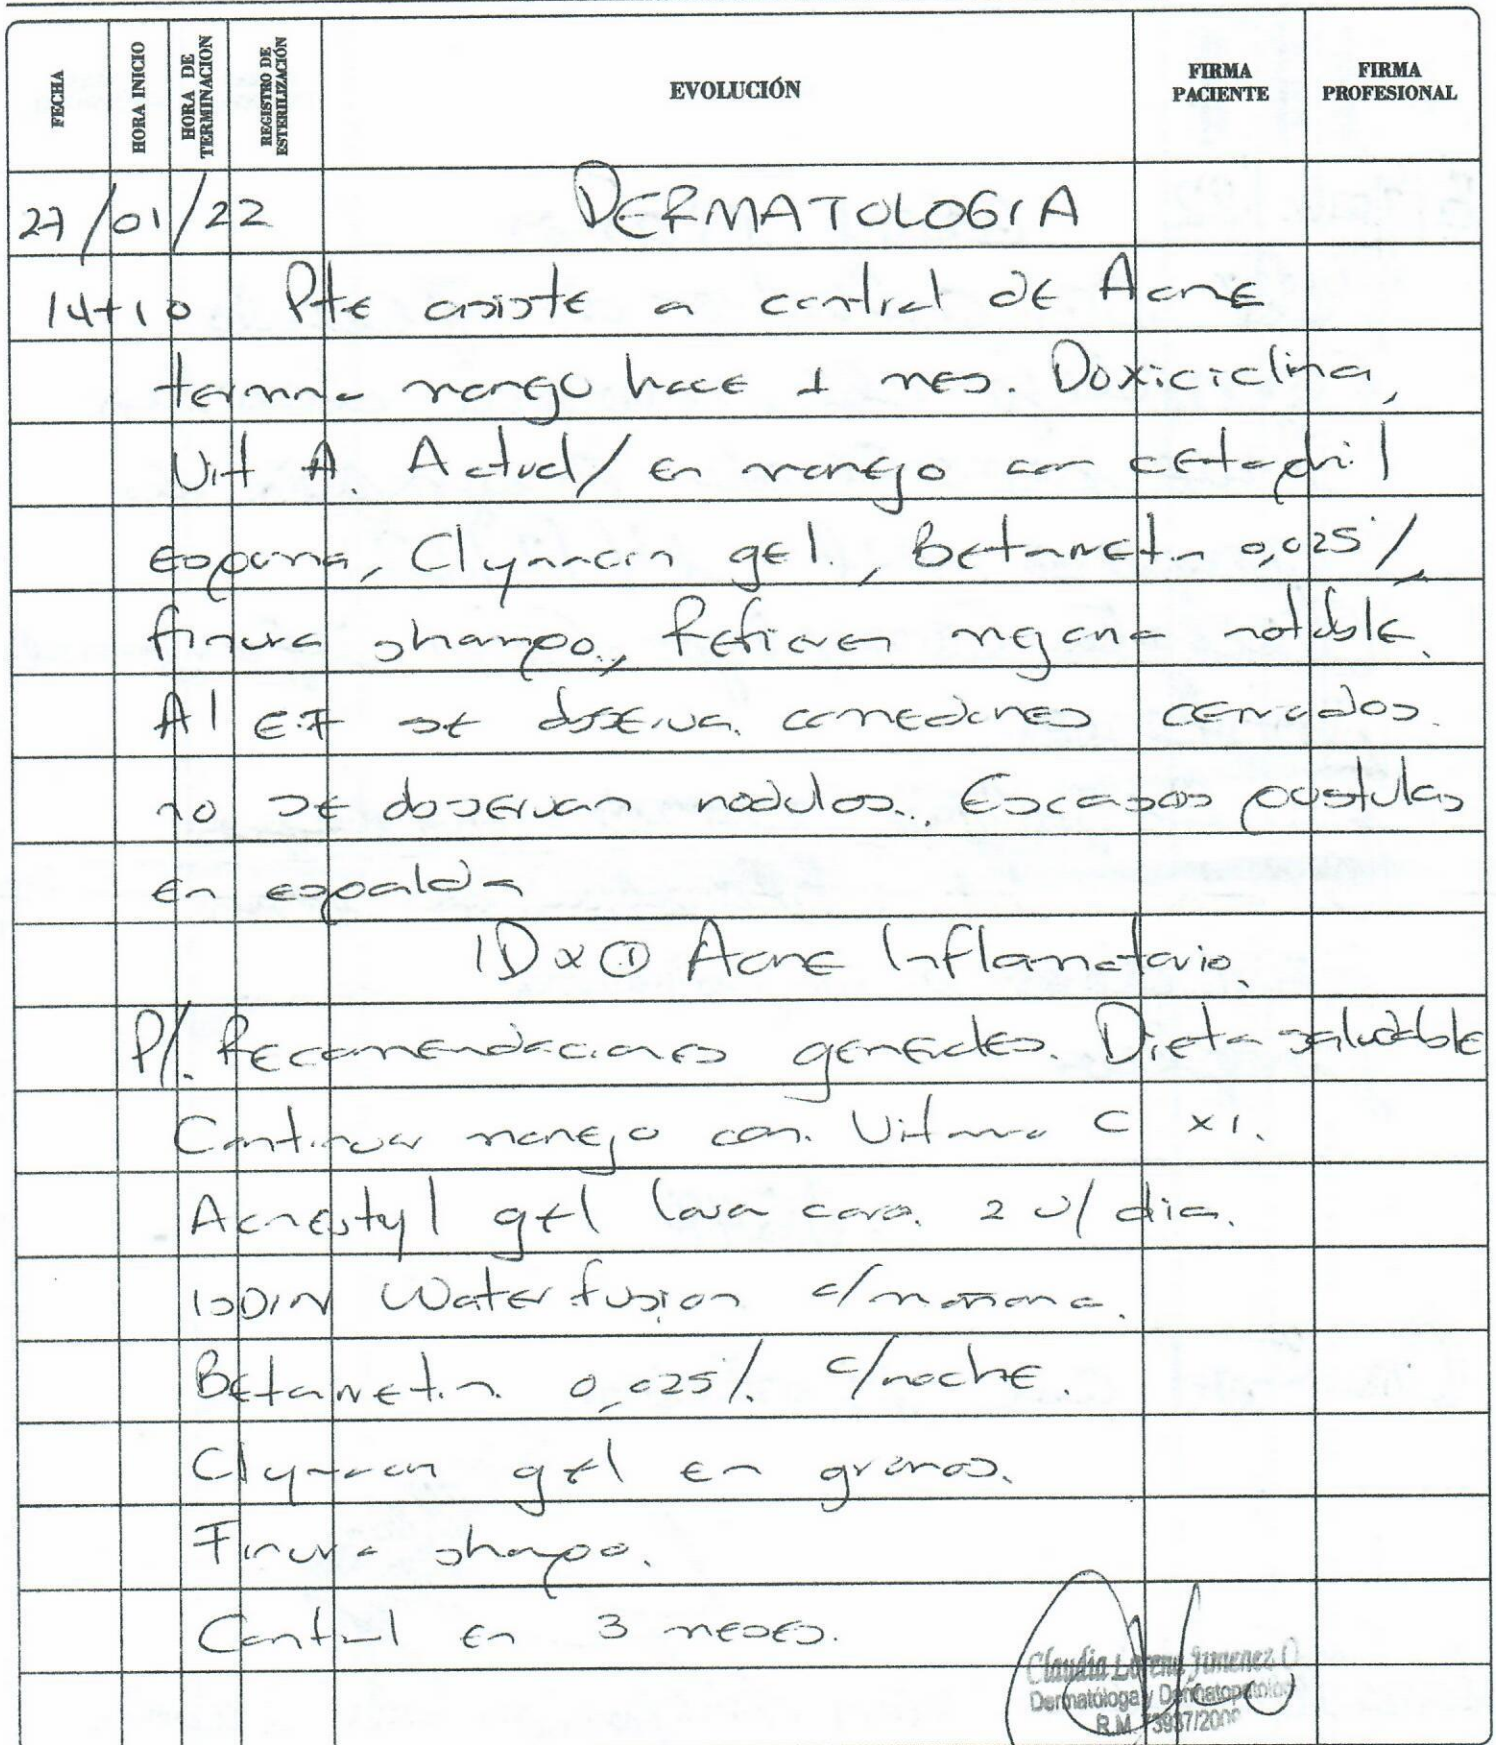 FECHA
HORA INICIO
HORA DE TERMINACION
REGISTRO DE ESTERILIZACIÓN
EVOLUCIÓN
FIRMA PACIENTE
FIRMA PROFESIONAL
27/01/22 DERMATOLOGIA
14+10 Pte asiste a control de Acne
termina manejo hace 1 mes. Doxiciclina,
Vit A. Actual/ en manejo con cetaphil
espuma, Clynman gel., Betarretin 0,025%,
finura shampo., Refieren mejoria notable.
Al E:F se observa comedones cerrados.
no se observan nodulos. Escasos pustulas
en espalda
IDx ① Acne Inflamatorio.
P/. Recomendaciones generales. Dieta saludable
Continuar manejo con. Vitamina C x1.
Acnestyl gel lava cara. 2 v/ dia.
ISDIN Water fusion c/mañana.
Betarretin 0,025%. c/noche.
Clynman gel en granos.
Finura shampo.
Control en 3 meses.
Claudia Lorena Jimenez O
Dermatóloga y Dermatopatolog
R.M. 73937/200